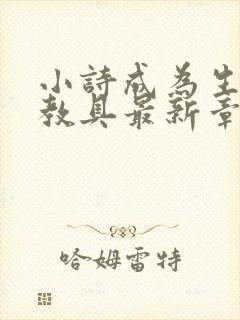 小詩成為生
教具最新章
哈姆雷特